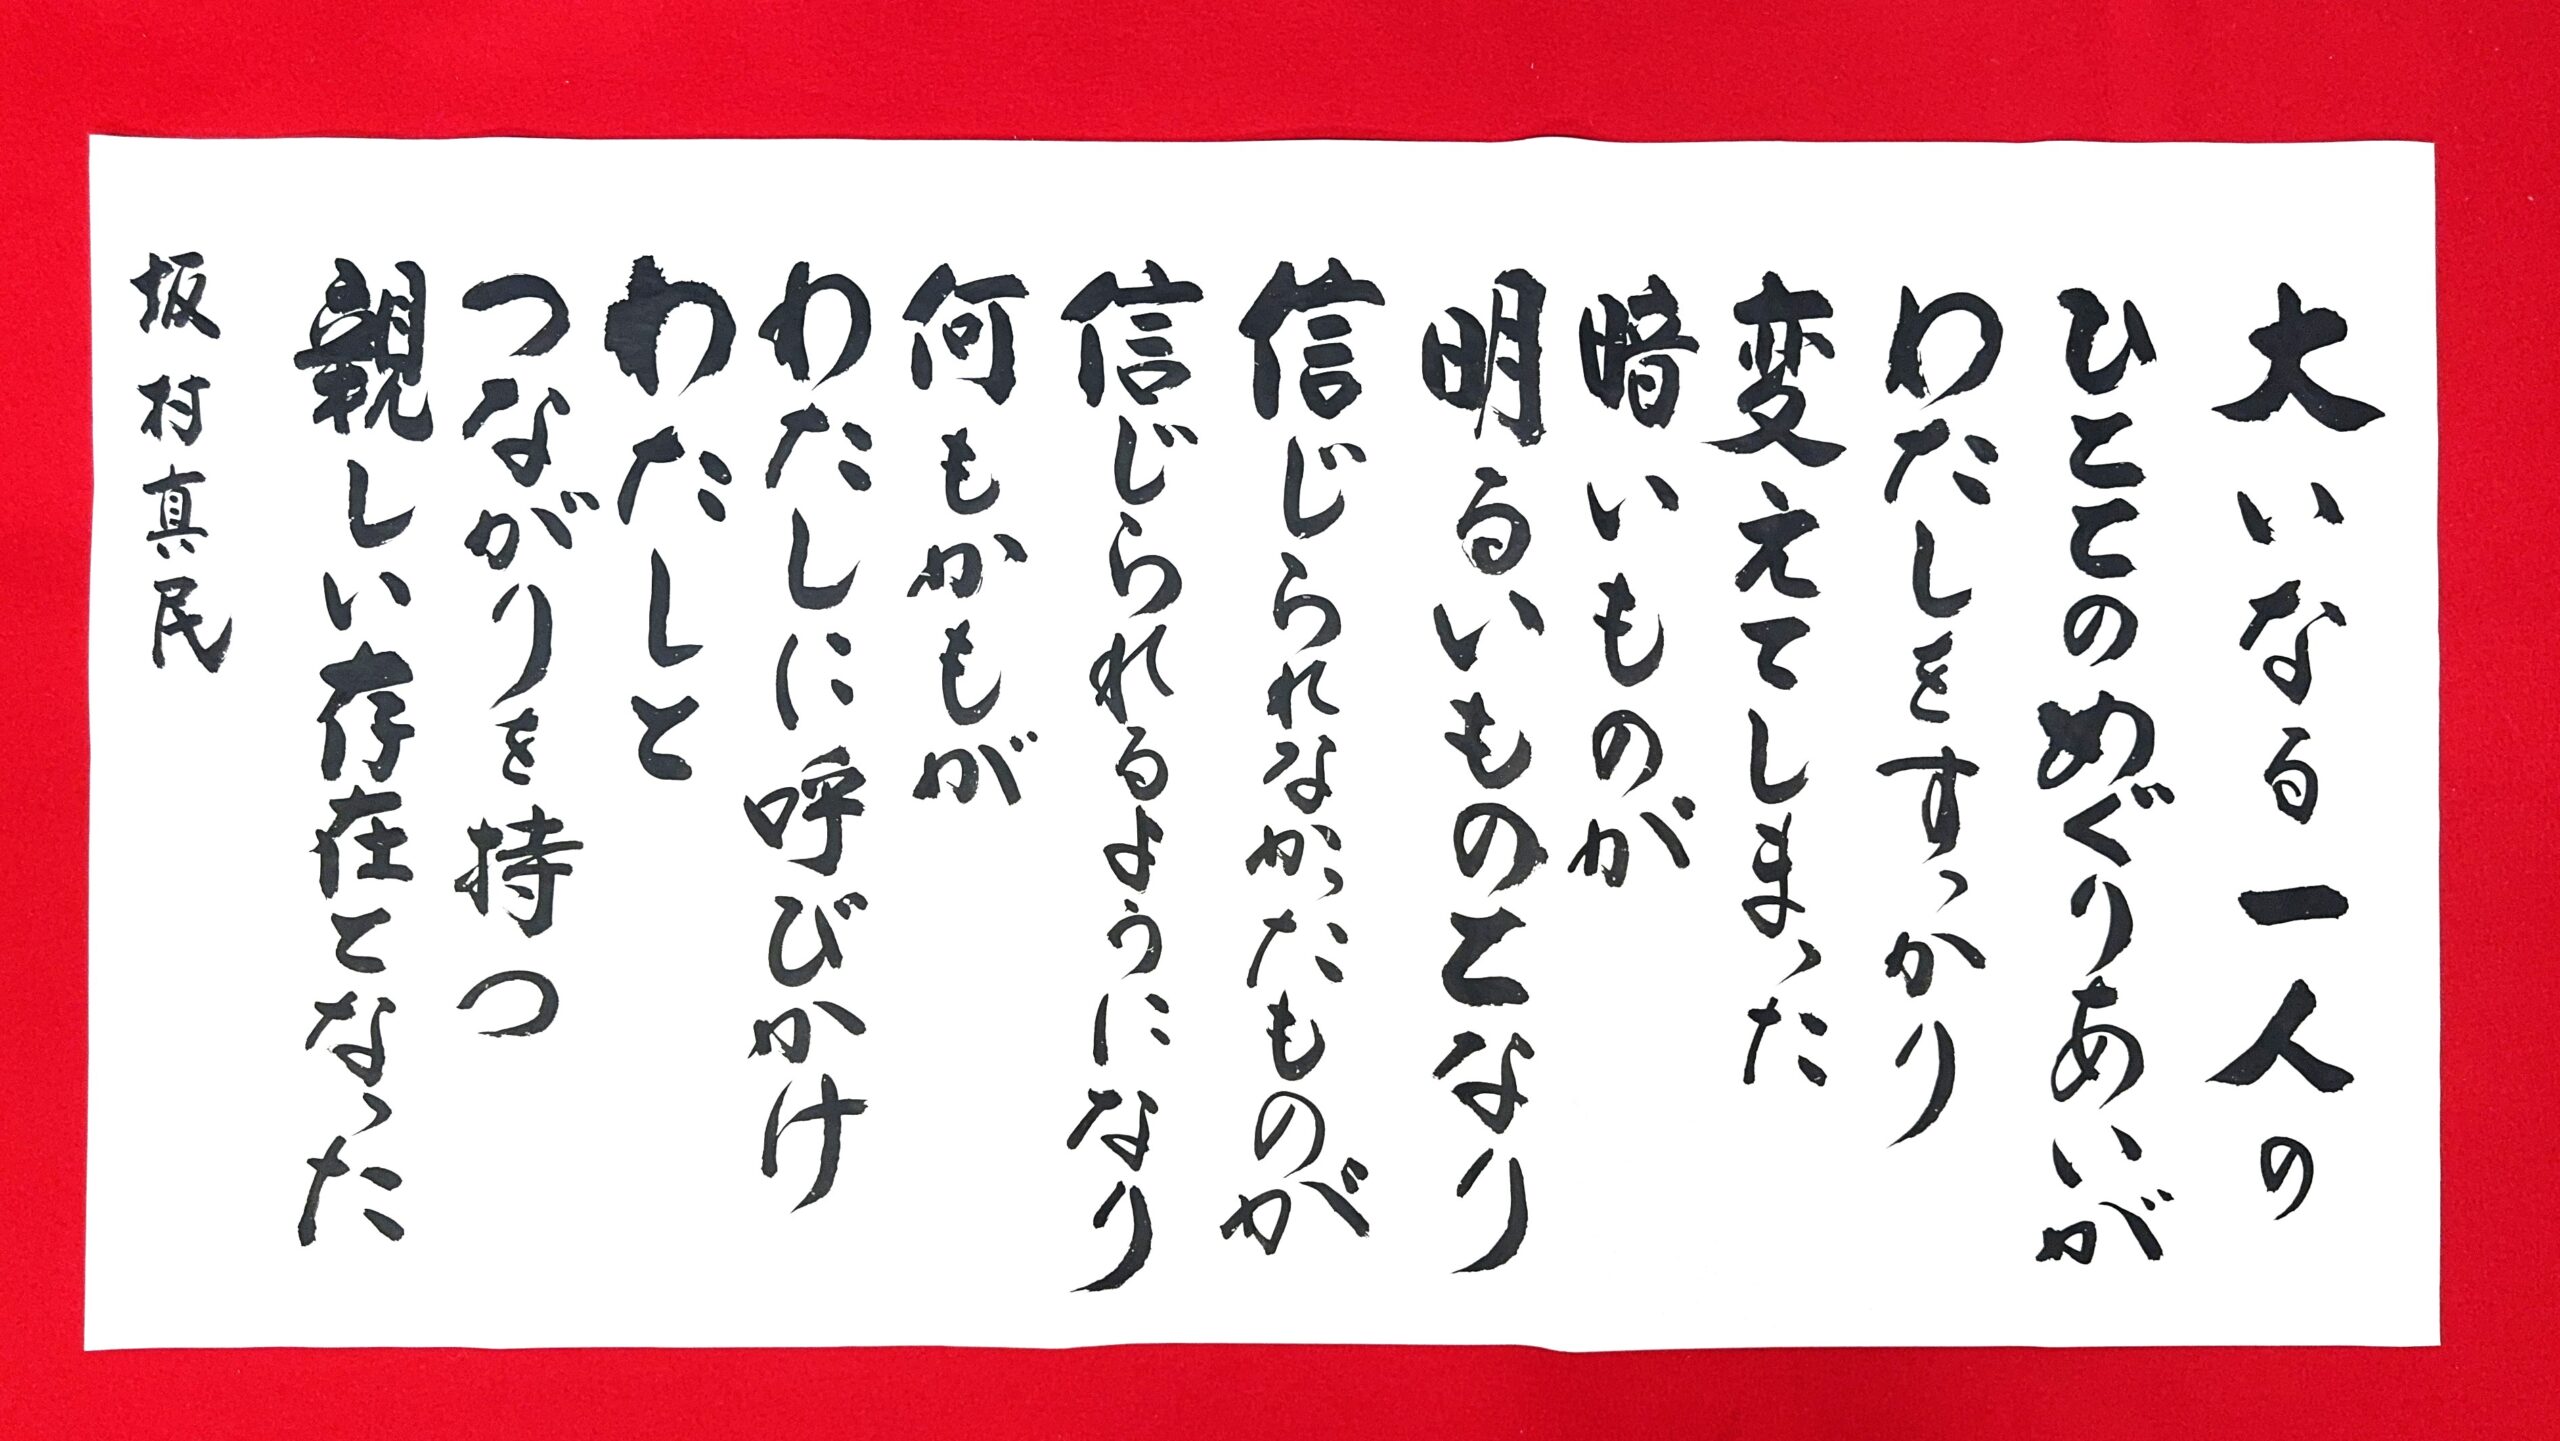 大いなる一人の
ひととのめぐりあいが
わたしをすっかり
変えてしまった
暗いものが
明るいものとなり
信じられなかったものが
信じられるようになり
何もかもが
わたしに呼びかけ
わたしと
つながりを持つ
親しい存在となった
坂村真民